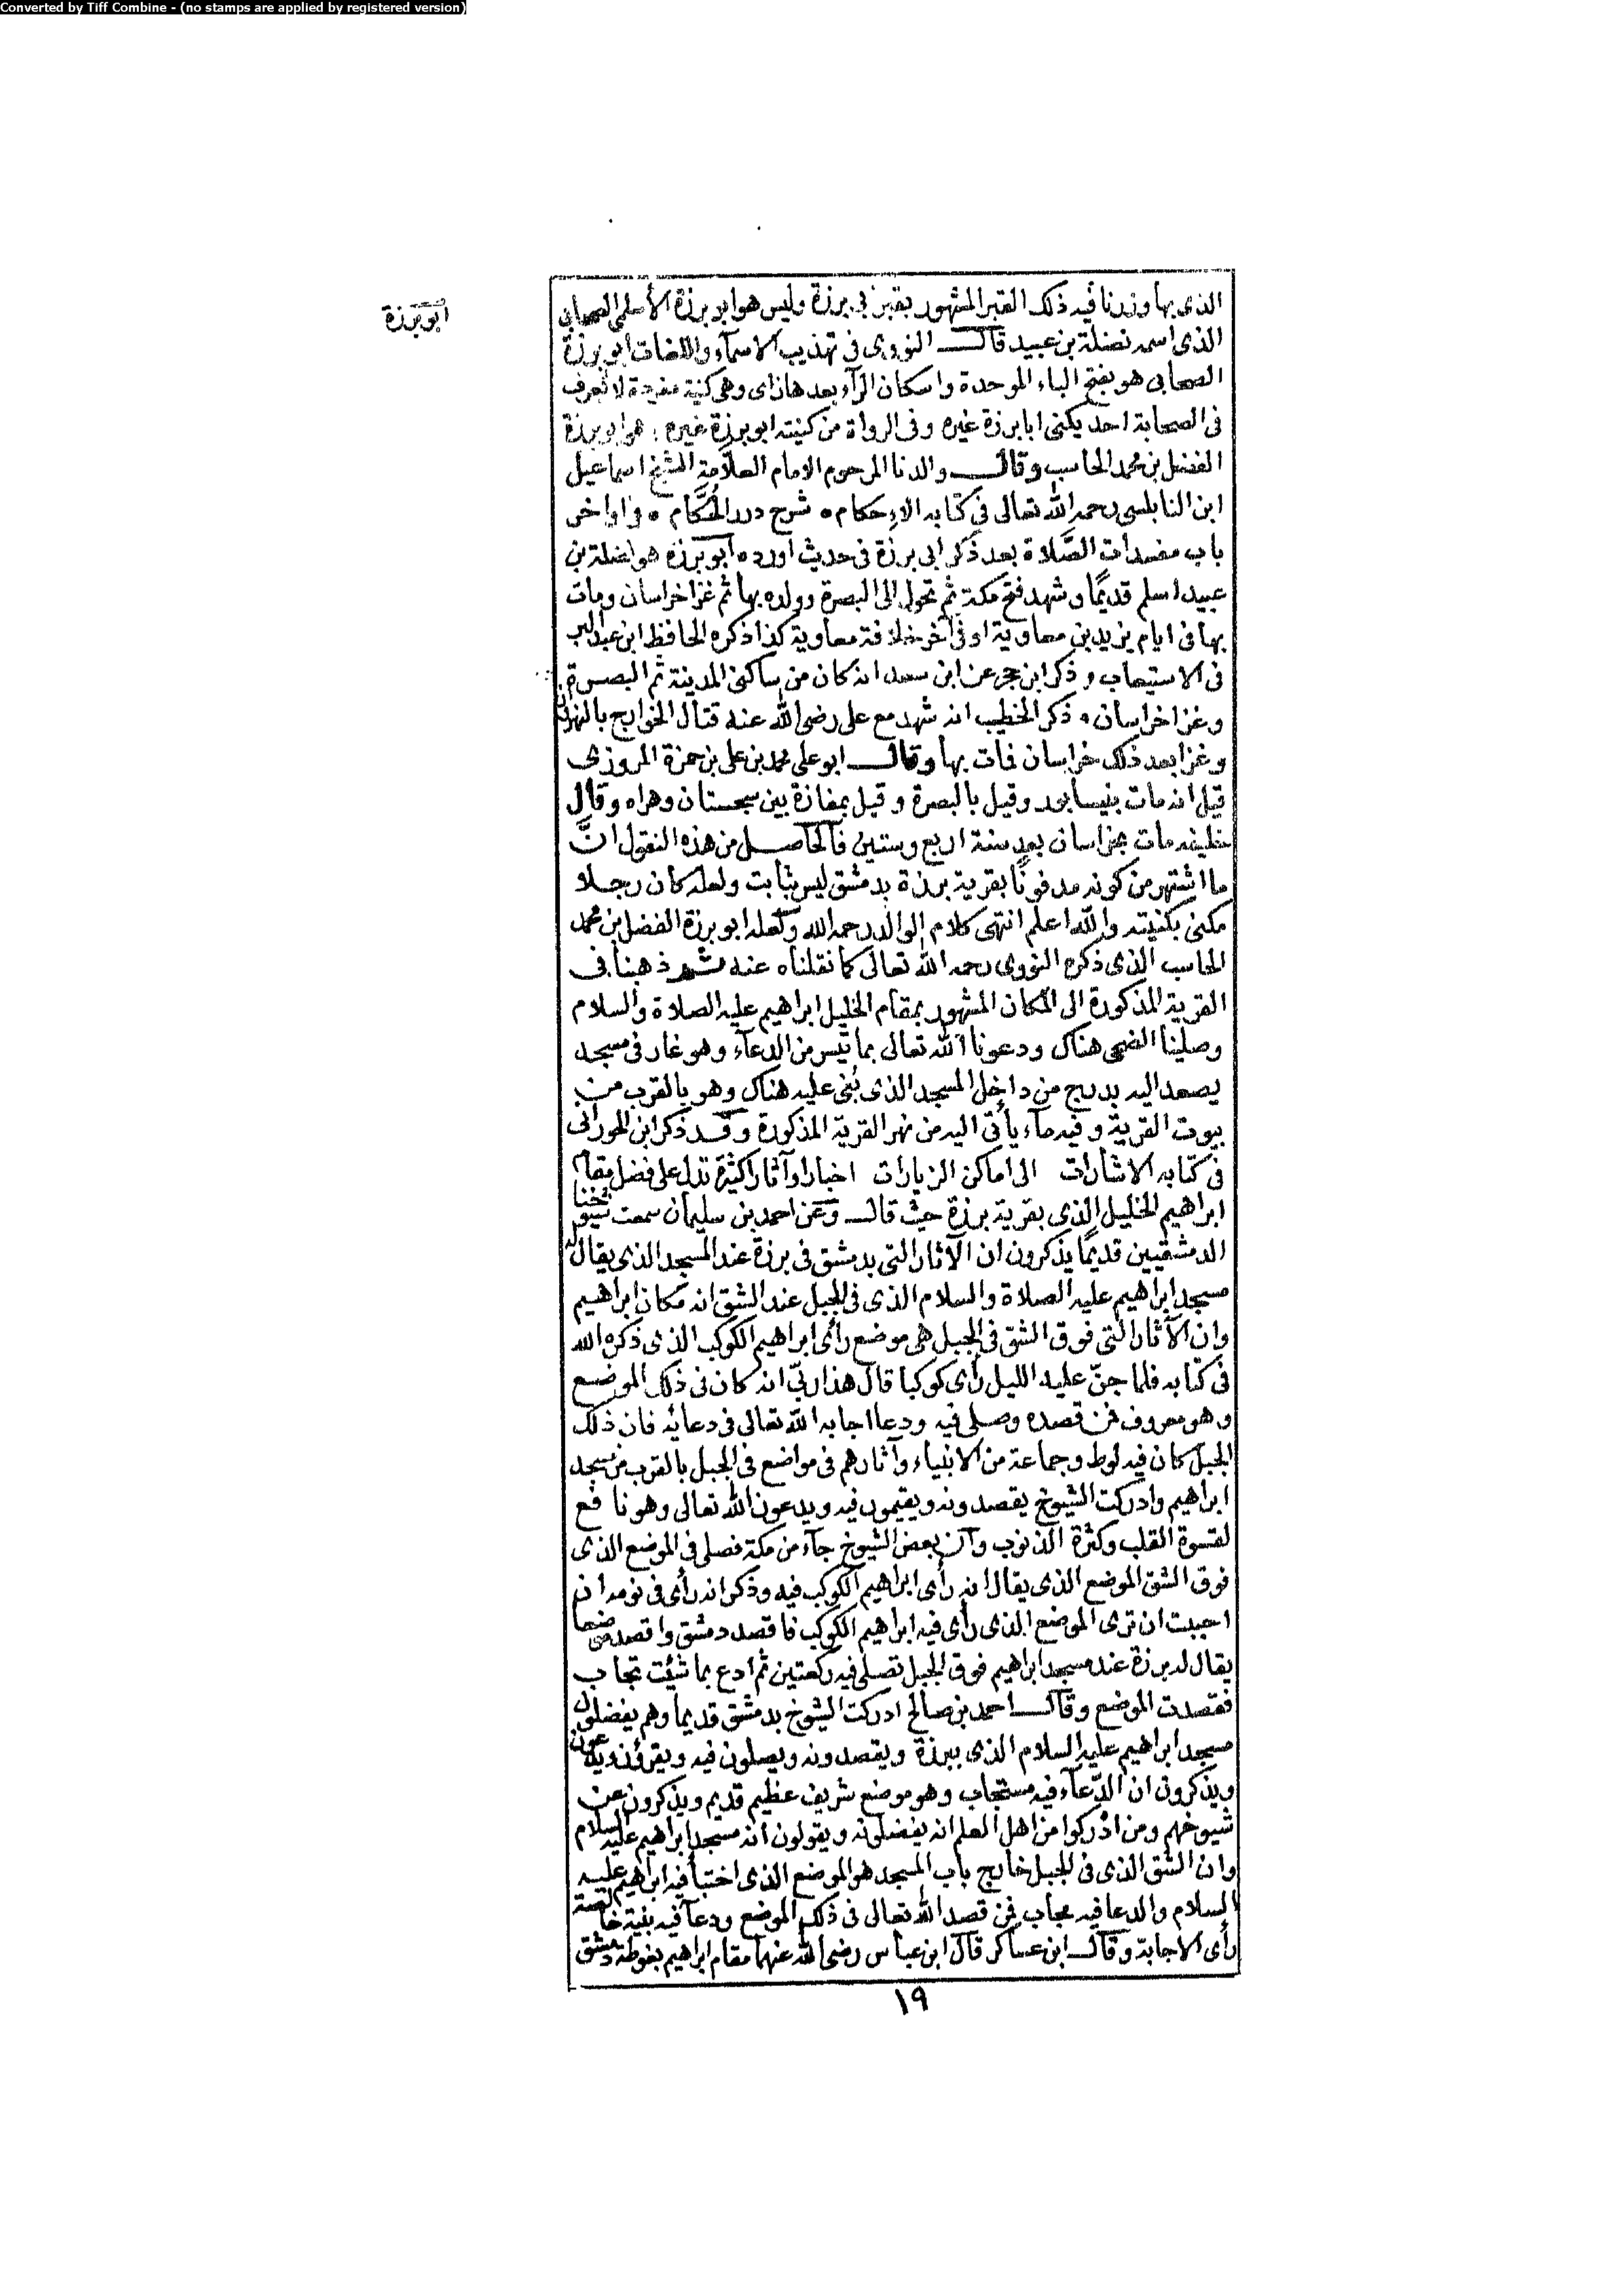 Converted by Tiff Combine - (no stamps are applied by registered version)
ابو برزة
الذى بها وزرنا فيه ذلك القبر المشهور بقبر ابى برزة وليس هو ابو برزة الأسلمى الصحابى
الذى اسمه نضلة بن عبيد قال النووى فى تهذيب الاسمآء واللغات ابو برزة
الصحابى هو بفتح الباء الموحدة واسكان الرآء بعدها زاى وهى كنية مفردة لا تعرف
فى الصحابة احد يكنى ابا برزة غيره وفى الرواة من كنيته ابو برزة غيره هو ابو برزة
الفضل بن محمد الحاسب وقال والدنا المرحوم الامام العلّامة الشيخ اسماعيل
ابن النابلسى رحمه الله تعالى فى كتابه الاحكام ٠ شرح درر الحُكَّام ٠ فى اواخر
باب مفسدات الصَّلاة بعد ذكر ابى برزة فى حديث اورده ابو برزة هو نضلة بن
عبيد اسلم قديمًا وشهد فتح مكة ثم تحول الى البصرة وولده بها ثم غزا خراسان ومات
بها فى ايام يزيد بن معاوية او فى آخر خلافة معاوية كذا ذكره الحافظ ابن عبد البر
فى الاستيعاب وذكر ابن حجر عن ابن سعد انه كان من ساكنى المدينة ثم البصرة
وغزا خراسان ٠ ذكر الخطيب انه شهد مع على رضى الله عنه قتال الخوارج بالنهروان
وغزا بعد ذلك خراسان فمات بها وقال ابو على محمد بن على بن حمزة المروزى
قيل انه مات بنيسابور وقيل بالبصرة وقيل بمفازة بين سجستان وهراه وقال
خليفة مات بخراسان بعد سنة اربع وستين فالحاصل من هذه النقول انَّ
ما اشتهر من كونه مدفونًا بقرية برزة بدمشق ليس بثابت ولعله كان رجلا
مكنى بكنيته والله اعلم انتهى كلام الوالد رحمه الله ولعله ابو برزة الفضل بن محمد
الحاسب الذى ذكره النووى رحمه الله تعالى كما نقلناه عنه ثم ذهبنا فى
القرية المذكورة الى المكان المشهور بمقام الخليل ابراهيم عليه الصلاة والسلام
وصلينا الضحى هناك ودعونا الله تعالى بما تيسر من الدعآء وهو غار فى مسجد
يصعد اليه بدرج من داخل المسجد الذى بُنى عليه هناك وهو بالقرب من
بيوت القرية وفيه مآء يأتى اليه من نهر القرية المذكورة وقد ذكر ابن الحورانى
فى كتابه الاشارات الى اماكن الزيارات اخبارا وآثارا كثيرة تدل على فضل مقام
ابراهيم الخليل الذى بقرية برزة حيث قال وعن احمد بن سليمان سمعت شيوخنا
الدمشقيين قديمًا يذكرون ان الآثار التى بدمشق فى برزة عند المسجد الذى يقال له
مسجد ابراهيم عليه الصلاة والسلام الذى فى الجبل عند الشق انه مكان ابراهيم
وان الآثار التى فوق الشق فى الجبل هى موضع رأى ابراهيم الكوكب الذى ذكره الله
فى كتابه فلما جنّ عليه الليل رأى كوكبا قال هذا ربّى انه كان فى ذلك الموضع
وهو معروف فمن قصده وصلى فيه ودعا اجابه الله تعالى فى دعائه فان ذلك
الجبل كان فيه لوط وجماعة من الانبياء وآثارهم فى مواضع فى الجبل بالقرب من مسجد
ابراهيم وادركت الشيوخ يقصدونه ويقيمون فيه ويدعون الله تعالى وهو نافع
لقسوة القلب وكثرة الذنوب وان بعض الشيوخ جآء من مكة فصلى فى الموضع الذى
فوق الشق الموضع الذى يقال انه رأى ابراهيم الكوكب فيه وذكر انه رأى فى نومه ان
احببت ان ترى الموضع الذى رأى فيه ابراهيم الكوكب فاقصد دمشق واقصد موضعا
يقال له برزة عند مسجد ابراهيم فوق الجبل تصلى فيه ركعتين ثم ادع بما شئت تجاب
فقصدت الموضع وقال احمد بن صالح ادركت الشيوخ بدمشق قديما وهم يفضلون
مسجد ابراهيم عليه السلام الذى ببرزة ويقصدونه ويصلون فيه ويقرؤن ويدعون
ويذكرون ان الدّعآء فيه مستجاب وهو موضع شريف عظيم قديم ويذكرون عن
شيوخهم ومن ادركوا من اهل العلم انه يفضلونه ويقولون انه مسجد ابراهيم عليه السلام
وان الشق الذى فى الجبل خارج باب المسجد هو الموضع الذى اختبأ فيه ابراهيم عليه
السلام والدعا فيه مجاب فمن قصد الله تعالى فى ذلك الموضع ودعا فيه بنية خالصة
رأى الاجابة وقال ابن عساكر قال ابن عباس رضى الله عنهما مقام ابراهيم بغوطة دمشق
١٩